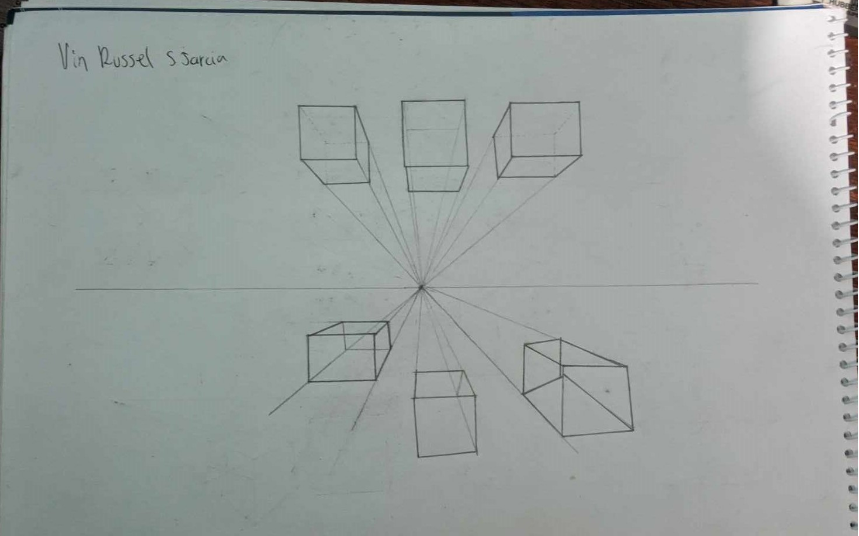 Vin Russel S Jarcia